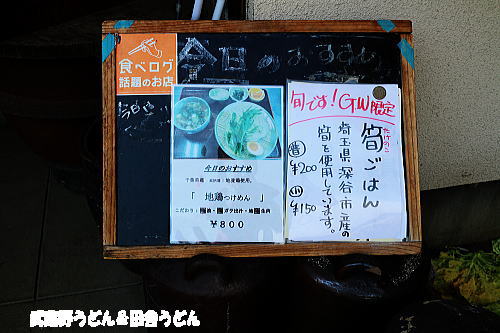 食べログ
話題のお店
今日のおすすめ
今日のおすすめ
「地鶏つけめん」
￥800
旬です！GW限定
たけのこ
筍ごはん
埼玉県深谷市産の
筍を使用しています。
普 ¥200
小 ¥150
武蔵野うどん＆田舎うどん